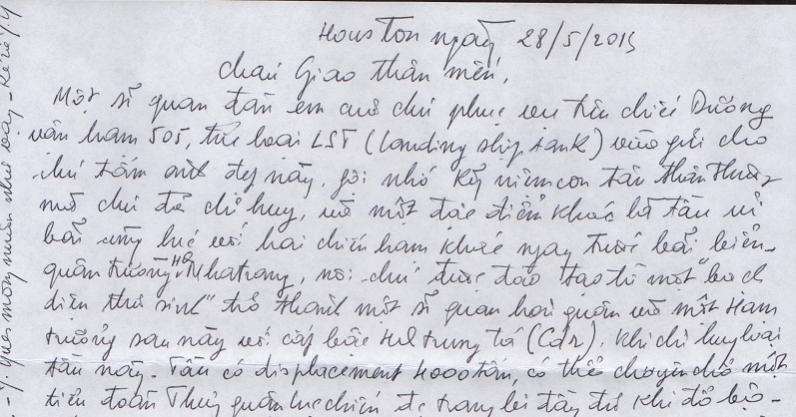 Houston ngày 28/5/2015
cháu Giao thân mến,
Một sĩ quan đàn em cũ chú phục vụ trên chiếc Dương
vận hạm 505, thuộc loại LST (landing ship tank) vừa gửi cho
chú tấm ảnh đẹp này, gợi nhớ kỷ niệm con tàu thân thương
mà chú đã chỉ huy, và một đặc điểm khác là tàu ủi
bãi cùng lúc với hai chiến hạm khác ngay trước bãi biển
quân trường HQ Nhatrang, nơi chú được đào tạo từ một "bạch
diện thư sinh" trở thành một sĩ quan hải quân và một Hạm
trưởng sau này với cấp bậc HQ trung tá (Cdr), khi chỉ huy loại
tàu này. Tàu có displacement 4000 tấn, có thể chuyên chở một
tiểu đoàn Thủy quân lục chiến được trang bị đầy đủ khi đổ bộ -